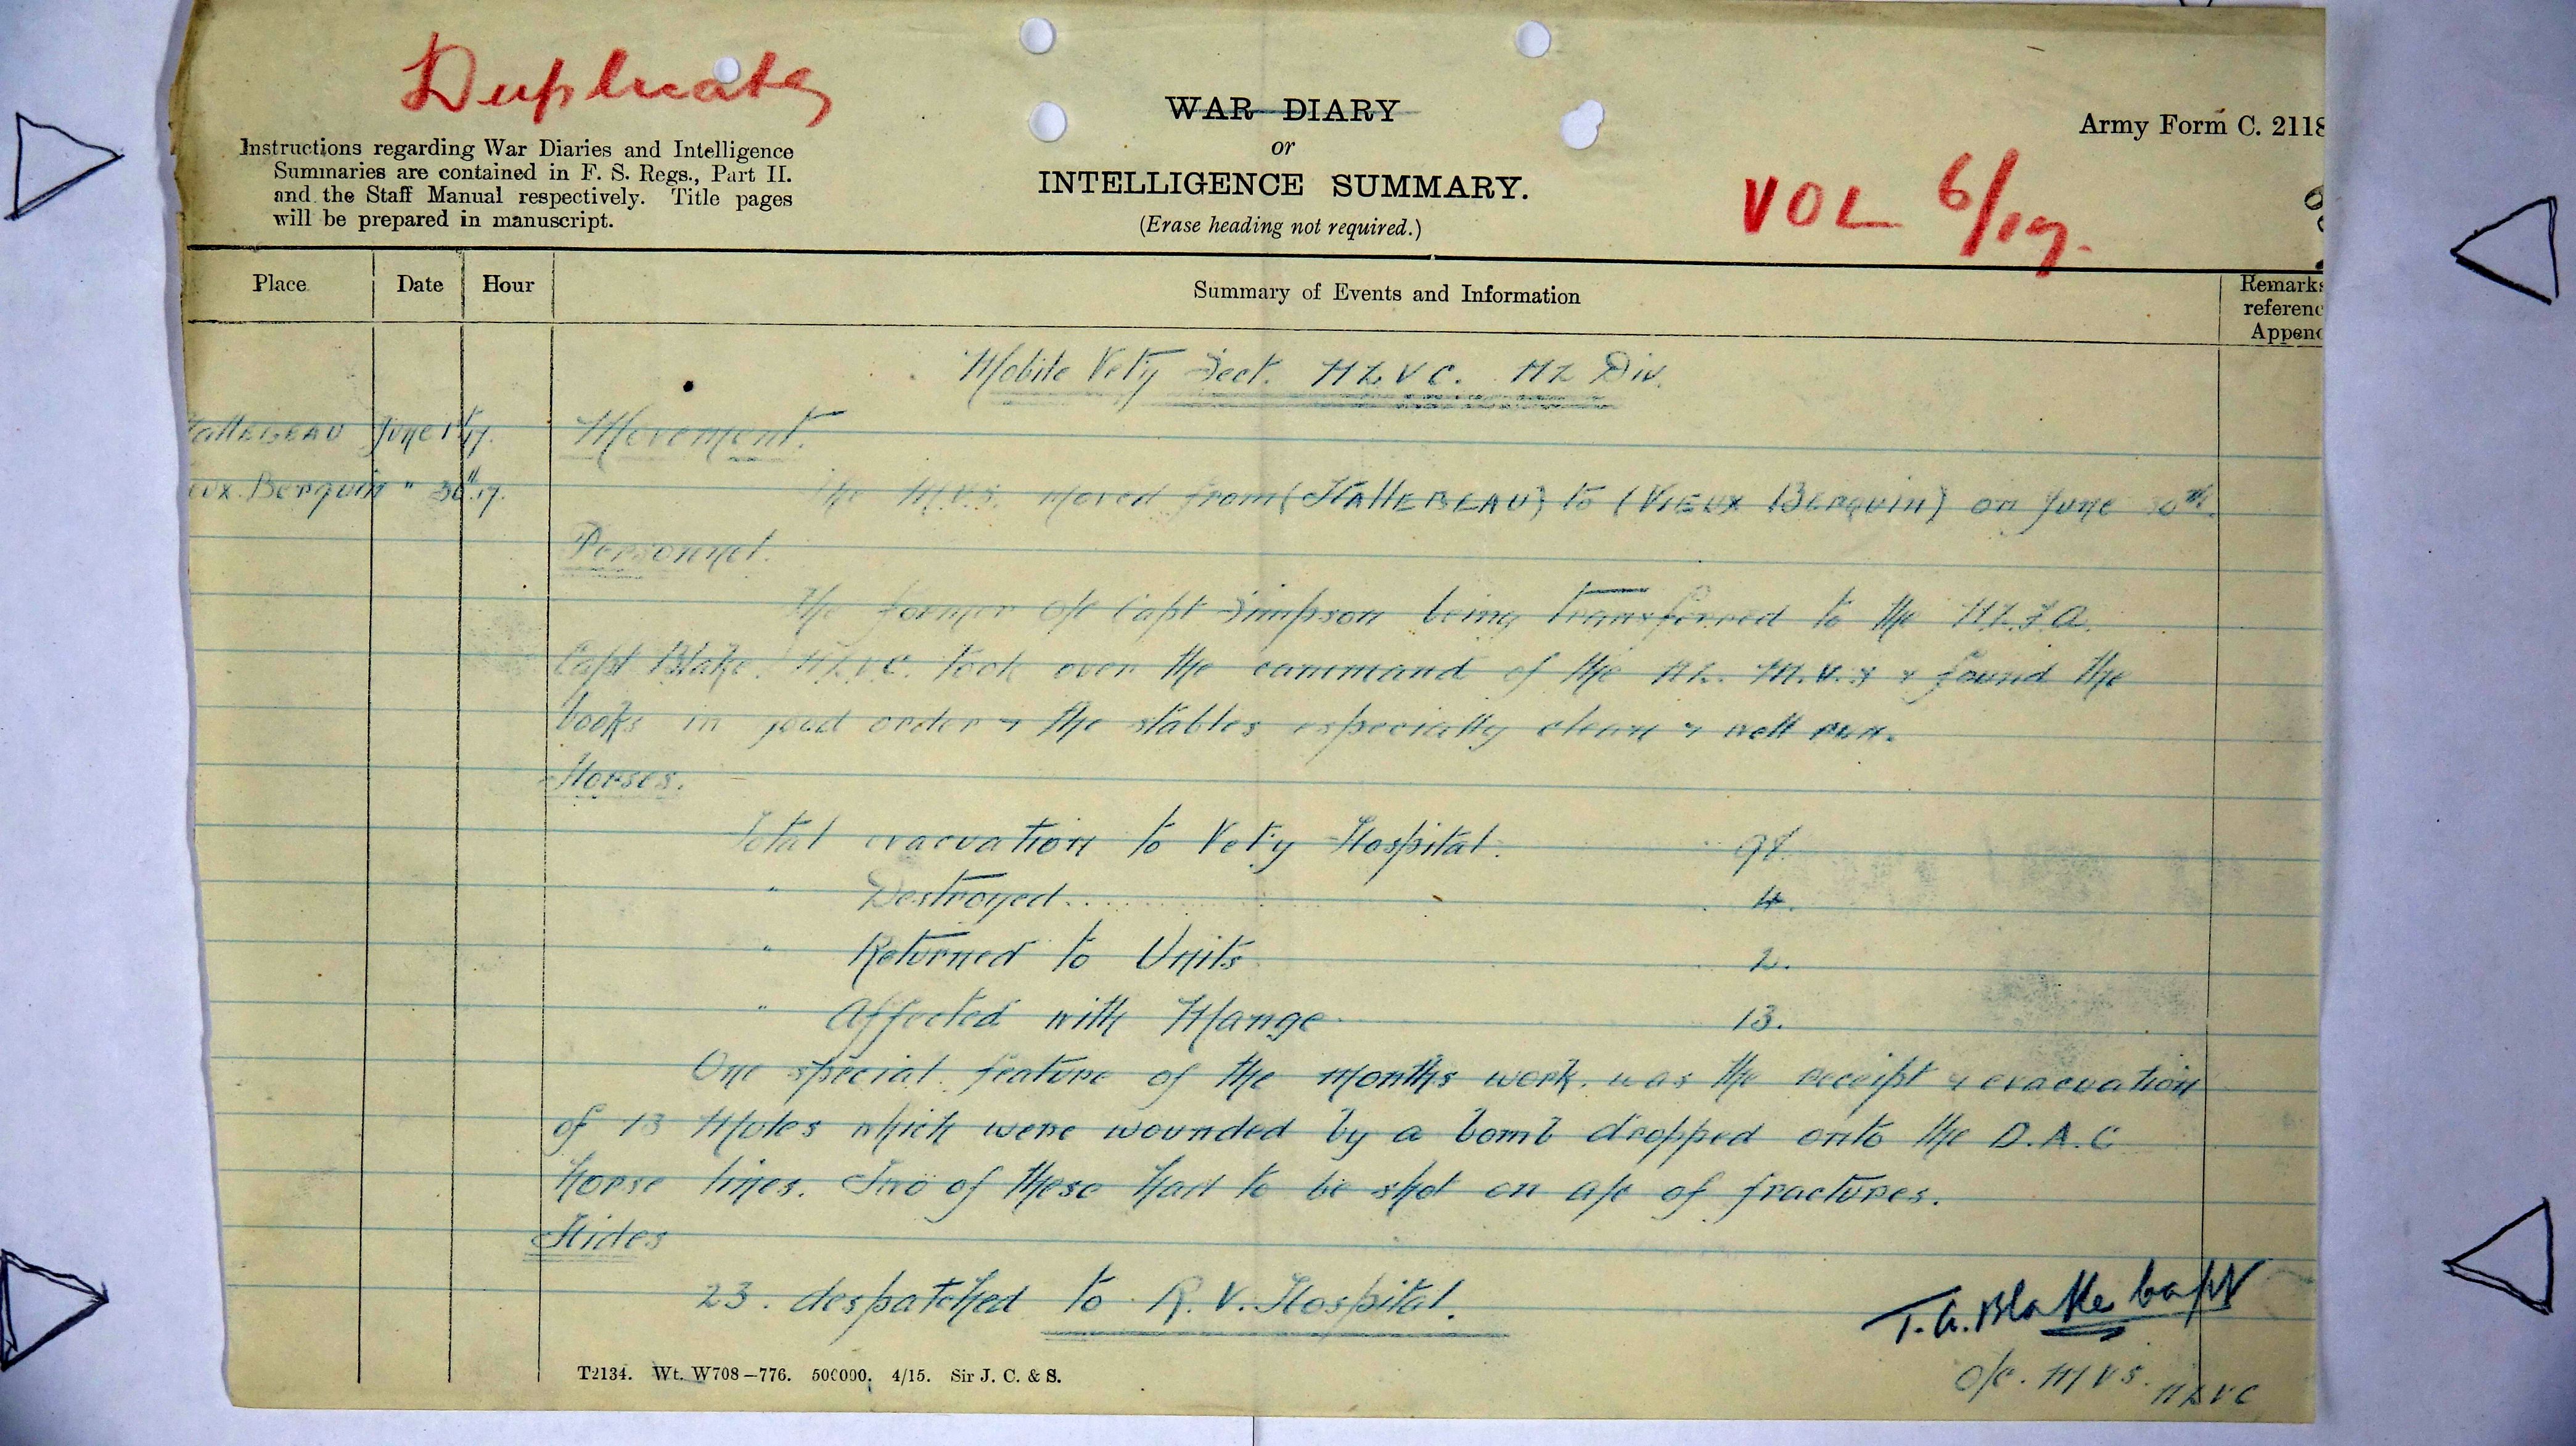 Duplicate
WAR DIARY
or
INTELLIGENCE SUMMARY.
(Erase heading not required.)
Army Form C. 2118
Instructions regarding War Diaries and Intelligence
Summaries are contained in F. S. Regs., Part II.
and the Staff Manual respectively. Title pages
will be prepared in manuscript.
VOL 6/17.
Place Date Hour Summary of Events and Information Remarks
referenc
Append
Mobile Vety Sect. NZVC. NZ Div.
HAllEBEAU June 1st 17. Movement.
eux. Berquin " 30th 17. The M.V.S. moved from (HAllEBEAU) to (VIEUX BERQUIN) on June 30th.
Personnel.
The former O/C Capt Simpson being transferred to the NZFA.
Capt Blake. NZVC. took over the command of the NZ. M.V.S & found the
books in good order & the stables especially clean & well run.
Horses.
Total evacuation to Vety Hospital.
" Destroyed.......... 4.
" Returned to Units 2.
" Affected with Mange 13.
One special feature of the months work. was the receipt & evacuation
of 13 Mules which were wounded by a bomb dropped onto the D.A.C
horse lines. Two of these had to be shot on a/c of fractures.
Hides
23. despatched to R.V. Hospital.
T.A. Blake Capt
O/C. MVS. NZVC
T2134. Wt. W708—776. 500000. 4/15. Sir J. C. & S.